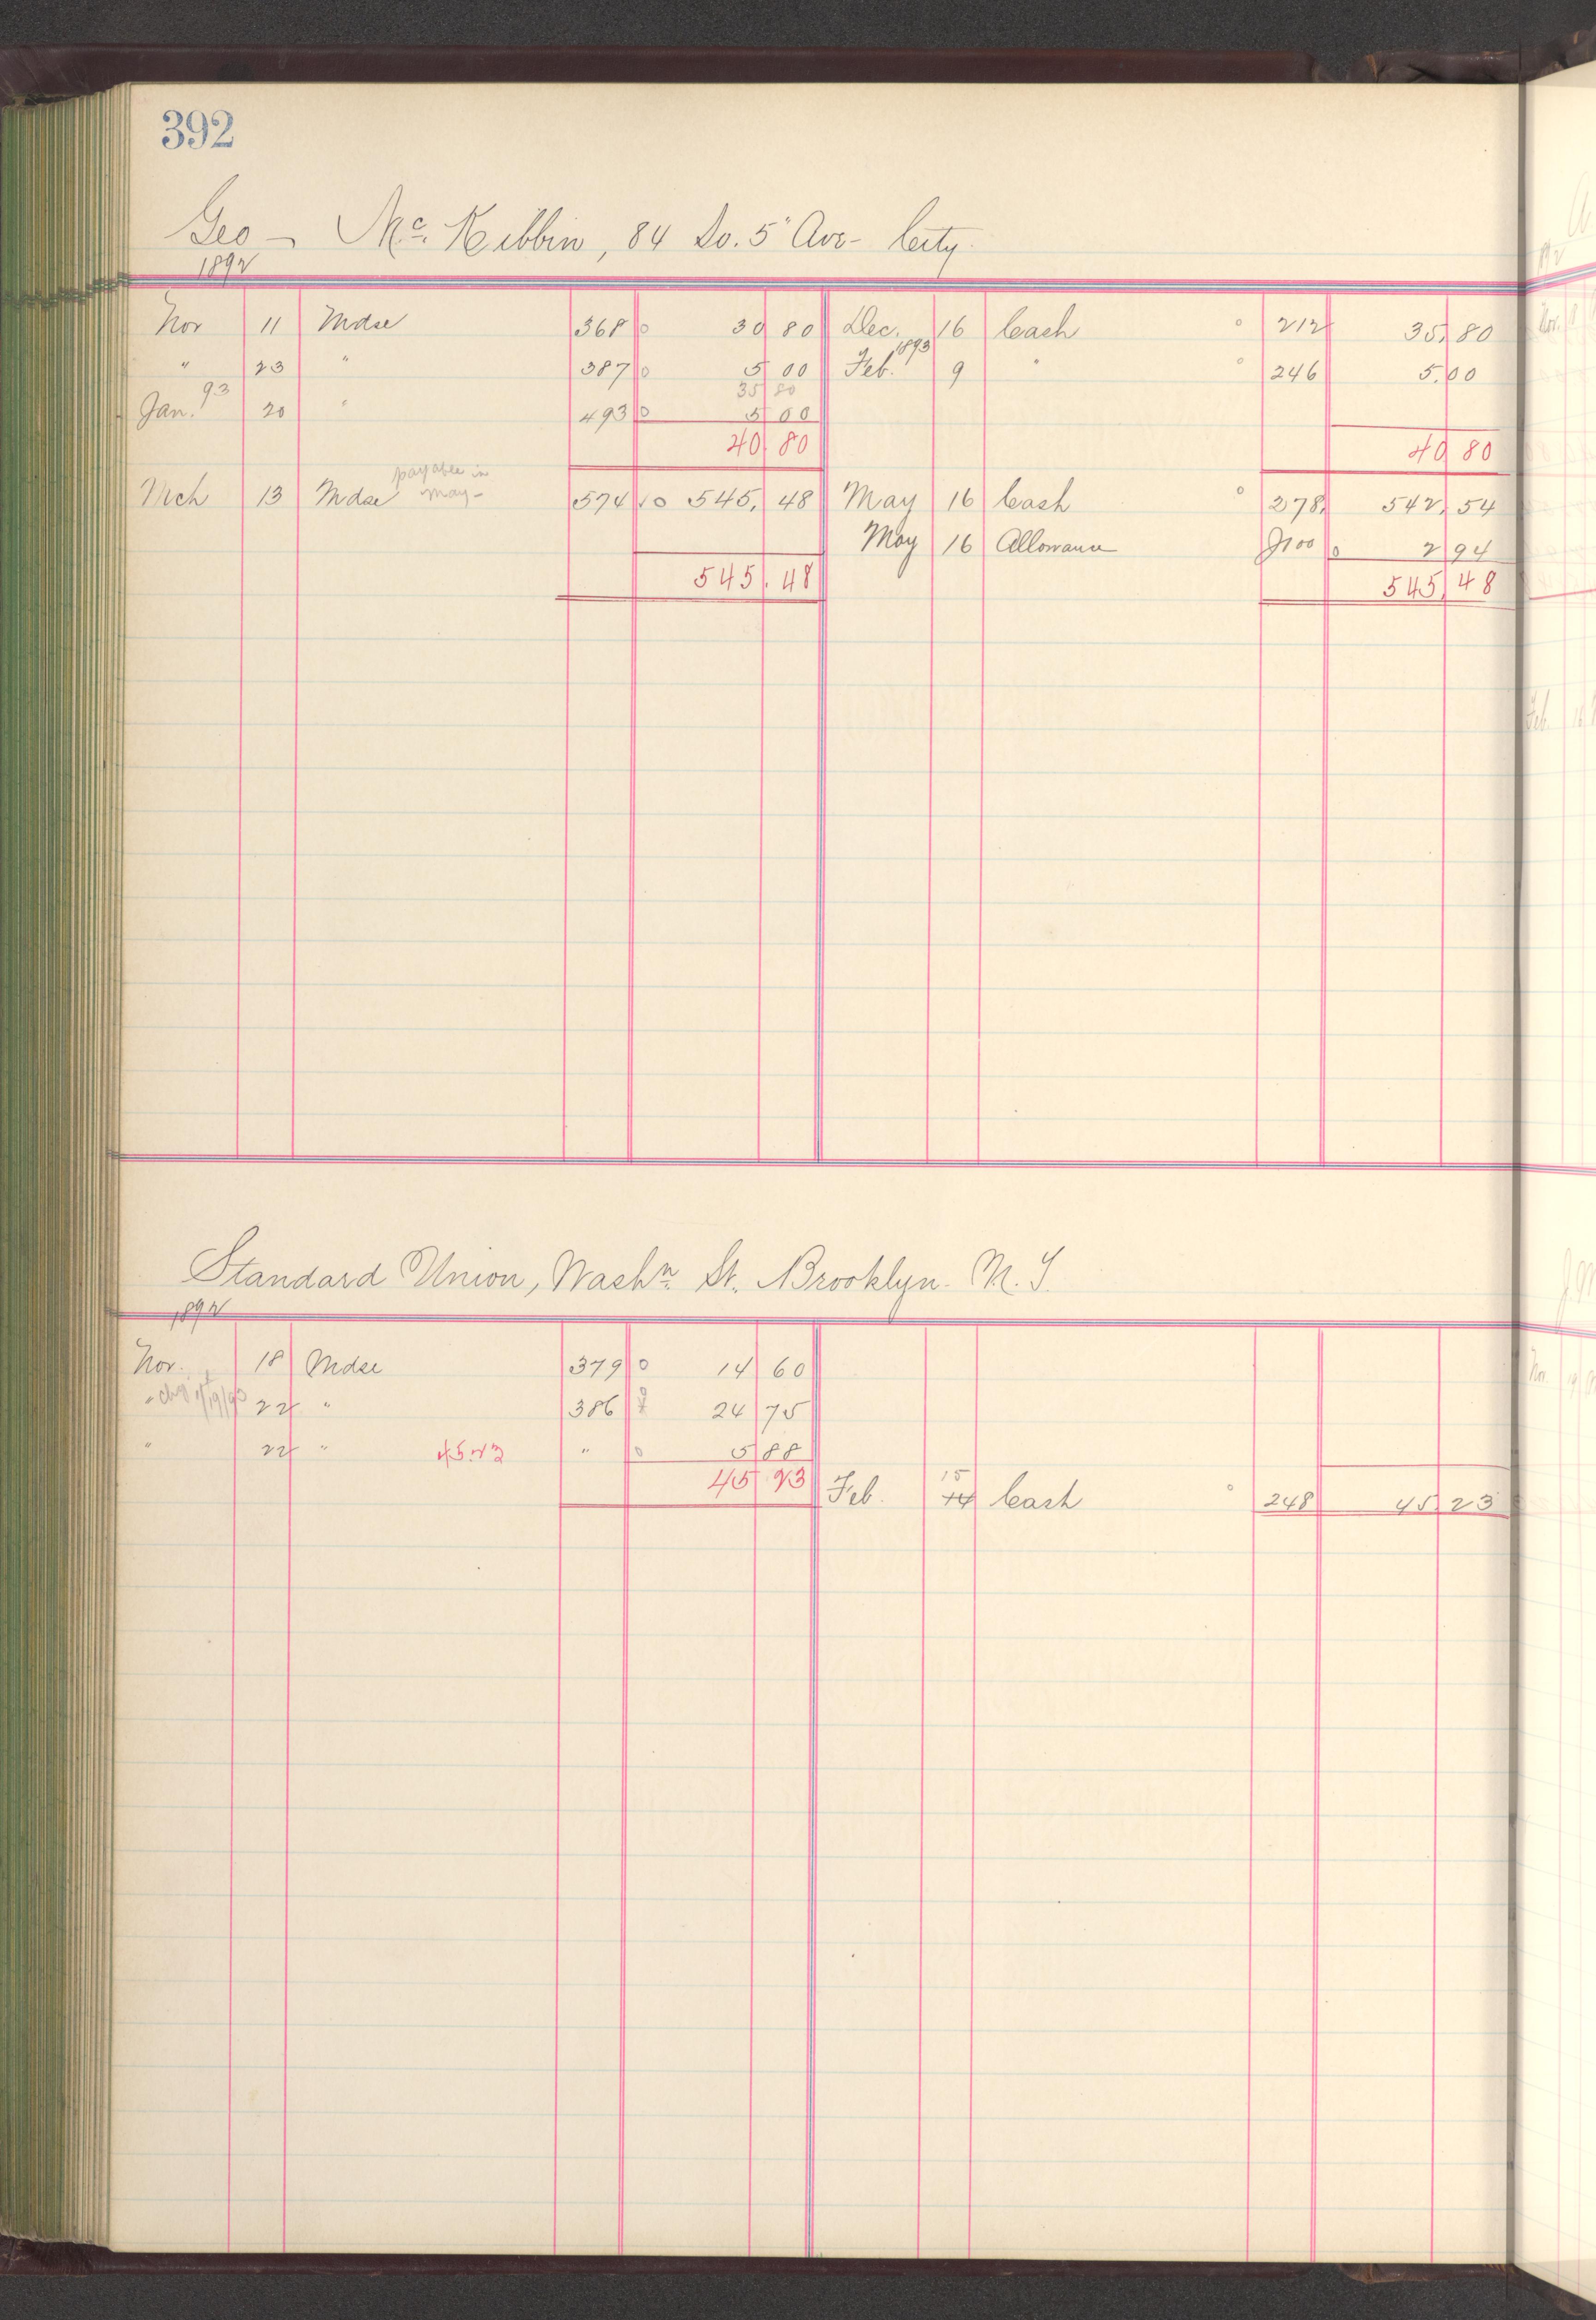 392
Geo - Mc. Kibbin, 84 So. 5" Ave - City.
1892
Nov 11 Mdse 368 0 30 80 Dec. 16 Cash 0 212 35.80
" 23 " 387 0 5 00 Feb. 1893 9 " 0 246 5.00
35 80
Jan. 93 20 " 493 0 5 00
40 80 40 80
payable in
Mch 13 Mdse May - 574 10 545.48 May 16 Cash 0 278 542.54
May 16 Allowance J100 0 2 94
545.48 545.48
Standard Union, Washn St. Brooklyn. N. Y.
1892
Nov. 18 Mdse 379 0 14 60
" chg 1/19/93 22 " 386 24 75
" 22 " 45.23 " 0 5 88
45 23
Feb. 15 14 Cash 0 248 45.23
Nov.
Feb.
Nov